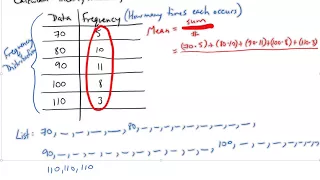 Data Frequency (How many times each occurs)
70 5
80 10
90 11
100 8
110 3
Frequency Distribution
Mean = sum
#
= (70·5)+(80·10)+(90·11)+(100·8)+(110·3)
List: 70, –, –, –, –, 80, –, –, –, –, –, –, –, –, –,
90, –, –, –, –, –, –, –, –, –, –, 100, –, –, –, –, –, –, –,
110, 110, 110